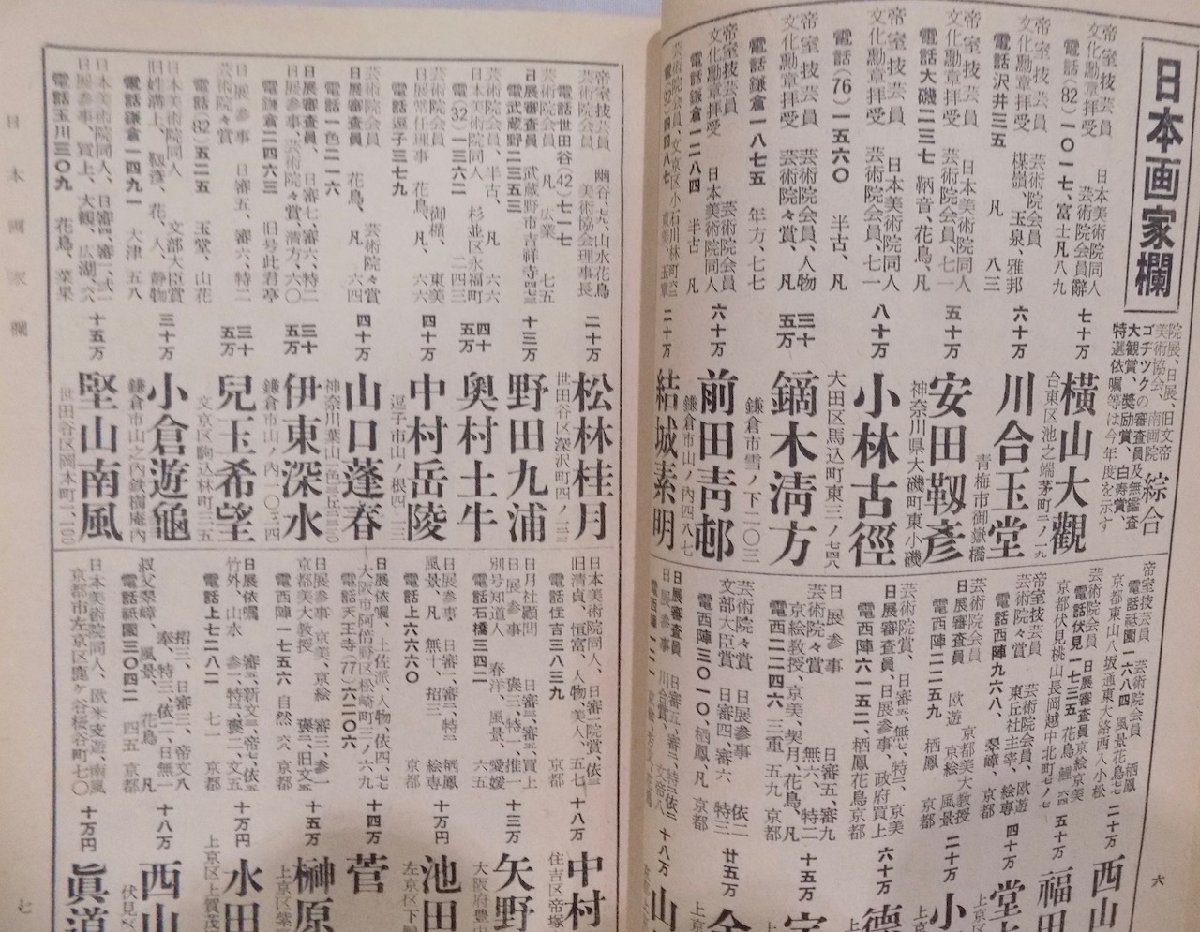 日本画家欄
綜合
院展、日展、旧文帝
美術協会、南画院
ゴチツクの審査員及無鑑査
大観賞、奨励賞、白寿賞
特選依嘱等は今年度を示す
帝室技芸員 日本美術院同人
文化勳章拝受 芸術院会員辭
電話(82)一〇一七、富士凡八九
七十万
横山大觀
台東区池之端茅町二ノ一九
帝室技芸員 芸術院会員、
文化勳章拝受 楳嶺、玉泉、雅邦
電話沢井三五 凡 八三
六十万
川合玉堂
青梅市御嶽橋
帝室技芸員 日本美術院同人
文化勳章拝受 芸術院会員、七一
電話大磯二三七 鞆音、花鳥、凡
五十万
安田靱彥
神奈川県大磯町東小磯
帝室技芸員 日本美術院同人
文化勳章拝受 芸術院会員、七一
電話(76)一五六〇 半古、凡
八十万
小林古徑
大田区馬込町東三ノ七
帝室技芸員 芸術院会員、人物
文化勳章拝受 芸術院々賞、凡
電話鎌倉一八七五 年方、七七
三十五万
鏑木清方
鎌倉市雪ノ下二〇三
帝室技芸員 芸術院会員
文化勳章拝受 日本美術院同人
電話鎌倉一二八四 半古 凡
六十万
前田青邨
鎌倉市山ノ内四八七
二十万
結城素明
帝室技芸員、 芸術院会員 栖鳳
電話祇園一六八四 風景花鳥七
京都東山八坂通東大路西入小松
二十万
西山
芸術院会員 日展審査員京絵京美
電話伏見一七三五 花鳥 鯉
京都伏見桃山長岡越中北町七ノ七
五十万
福田
帝室技芸員 芸術院会員、欧遊
芸術院々賞 東丘社主宰、絵専
電話西陣九六八、翠嶂、京都
四十万
堂
芸術院会員 京都美大教授
日展審査員 欧遊 京絵、風景
電西陣二二五九 栖鳳 京都
二十万
小
芸術院賞、日審五、無七、特三、京美
日展審査員、日展参事、政府買上
電西陣六一五二、栖鳳花鳥京都
六十万
德
日展参事 日審五、審九
芸術院々賞 無六、特二
京絵教授、京美、契月、花鳥、凡
電西二二四六 三重 五九 京都
十五万
宇
芸術院々賞 日展参事 依二
文部大臣賞 日審四、審六、特三
電西陣三〇一〇、栖鳳、凡 京都
廿五万
金
十八万
山
六
帝室技芸員 幽谷、七九、山水花鳥
芸術院会員、美術協会理事長
電話世田谷(42)七一七
二十万
松林桂月
世田谷区深沢町四ノ
芸術院会員 凡 広業 七五
日展審査員 武蔵野市吉祥寺
電武蔵野二三五三
十三万
野田九浦
芸術院会員、半古、凡 六六
日本美術院同人 杉並区永福町
電(32)一三六二 二四三
四十五万
奥村土牛
芸術院会員 御樋、東美
日展常任理事 花鳥、凡 六六
電話逗子三七九
四十万
中村岳陵
逗子市山ノ根四
芸術院会員 芸術院々賞
日展審査員 花鳥、凡 六四
電話一色二一六
四十万
山口蓬春
神奈川葉山一色
日展審査員、日審七、審六、特二
日展参事、芸術院々賞、清方六〇
電鎌倉二四六三 旧号此君亭
三十五万
伊東深水
鎌倉市山ノ内一〇三四
日展参事 日審五、審六、特二
芸術院々賞
電話(82)五二五 玉堂、山花
三十五万
兒玉希望
文京区駒込林町二五
日本美術院同人 文部大臣賞
旧姓溝上、靱彦、花、人、静物
電話鎌倉一四九一 大津 五八
三十万
小倉遊龜
鎌倉市山之内
日本美術院同人、日審四、審二
日展参事、買上、大観、広湖、六八
電話玉川三〇九 花鳥、菜果
十五万
堅山南風
世田谷区岡本町一、一〇
日本美術院同人、日審二院賞、依三
旧清貞、恒富、人物、美人、五七
電話住吉三八三九
十八万
中村
住吉区帝塚
日月社顧問 日審三、審三、買上
日展参事 褒三、特一、推一
別号知道人 春洋、風景、愛媛
電話石橋三四二 六五
十三万
矢野
大阪府豊
日展参事 日審二、審二、特三 栖鳳
風景、凡 無十、招三、 絵専
電話上六六六〇 京都
十万円
池田
左京区下
日展依嘱、土佐派、人物、依四、七七
大阪市阿倍野区松崎町三ノ六九
電話天王寺(77)六二〇六
十四万
菅
日展参事、京美、京絵 審三、参一
京都美大教授 褒二、旧文五
電西陣一七五六 自然 六八 京都
十五万
榊原
上京区紫
日展依嘱 審五、新文三、帝七、依五
竹外、山水 参一、特三、褒二、文五
電話上七二八二 七一 京都
十万円
水田
上京区上賀茂
招三、日審三、帝文八
叔父翠嶂、 奉一、特三、依二、日無一
風景、花鳥 凡
電話祇園三〇四二 四五 京都
十八万
西山
伏見区
日本美術院同人、欧米支遊、南風
京都市左京区鹿ケ谷桜谷町七〇
十万円
眞道
日本画家欄
七